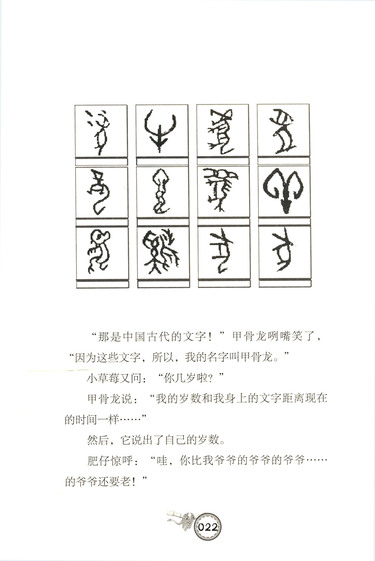 “那是中国古代的文字！”甲骨龙咧嘴笑了，
“因为这些文字，所以，我的名字叫甲骨龙。”
小草莓又问：“你几岁啦？”
甲骨龙说：“我的岁数和我身上的文字距离现在
的时间一样……”
然后，它说出了自己的岁数。
肥仔惊呼：“哇，你比我爷爷的爷爷的爷爷……
的爷爷还要老！”
022